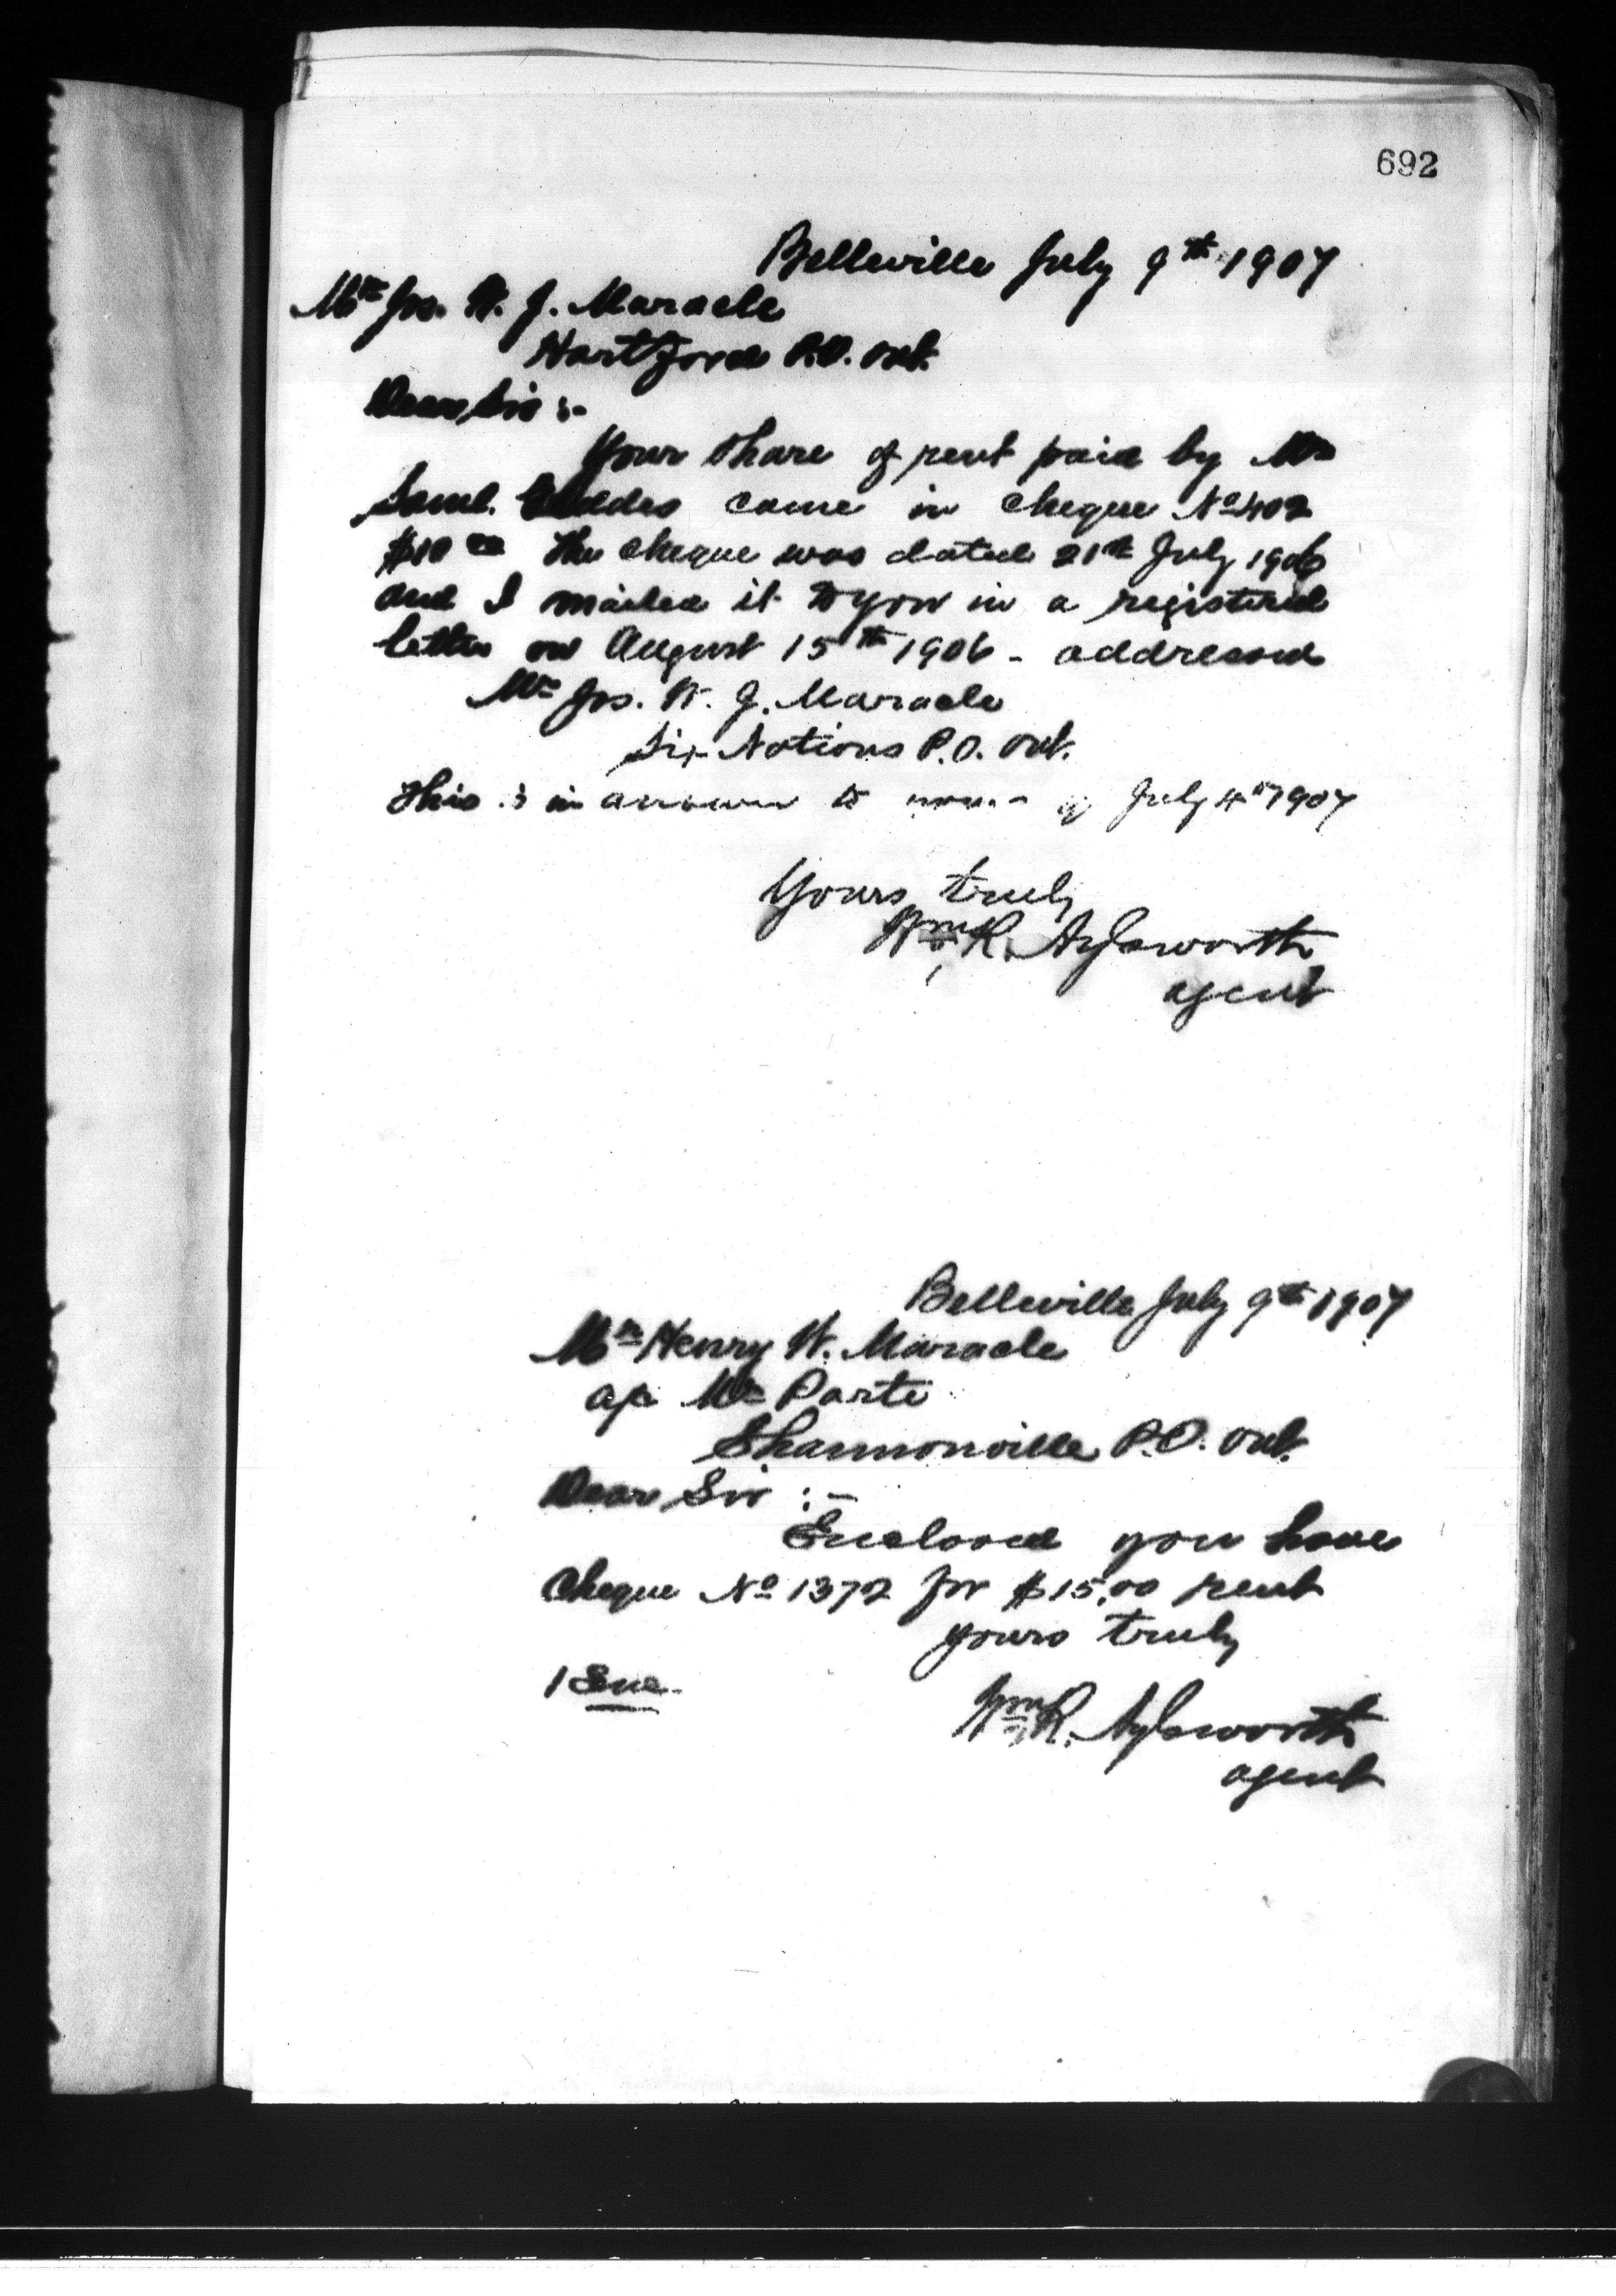 692
Belleville July 9th 1907
Mr Jos. W. J. Maracle
Hartford P.O. Ont.
Dear Sir :-
Your share of rent paid by Mr
Saml. came in cheque No 402
$10 00 The cheque was dated 21st July 1906
and I mailed it to you in a registered
letter on August 15th 1906 - addressed
Mr Jos. W. J. Maracle
Six Nations P.O. Ont.
This is in answer to yours of July 4th 1907
Yours truly
Wm R. Aylsworth
agent
Belleville July 9th 1907
Mr Henry W. Maracle
Mr
Shannonville P.O. Ont.
Dear Sir :-
Enclosed you have
Cheque No 1372 for $15.00 rent
yours truly
1 Enc.
Wm R. Aylsworth
agent